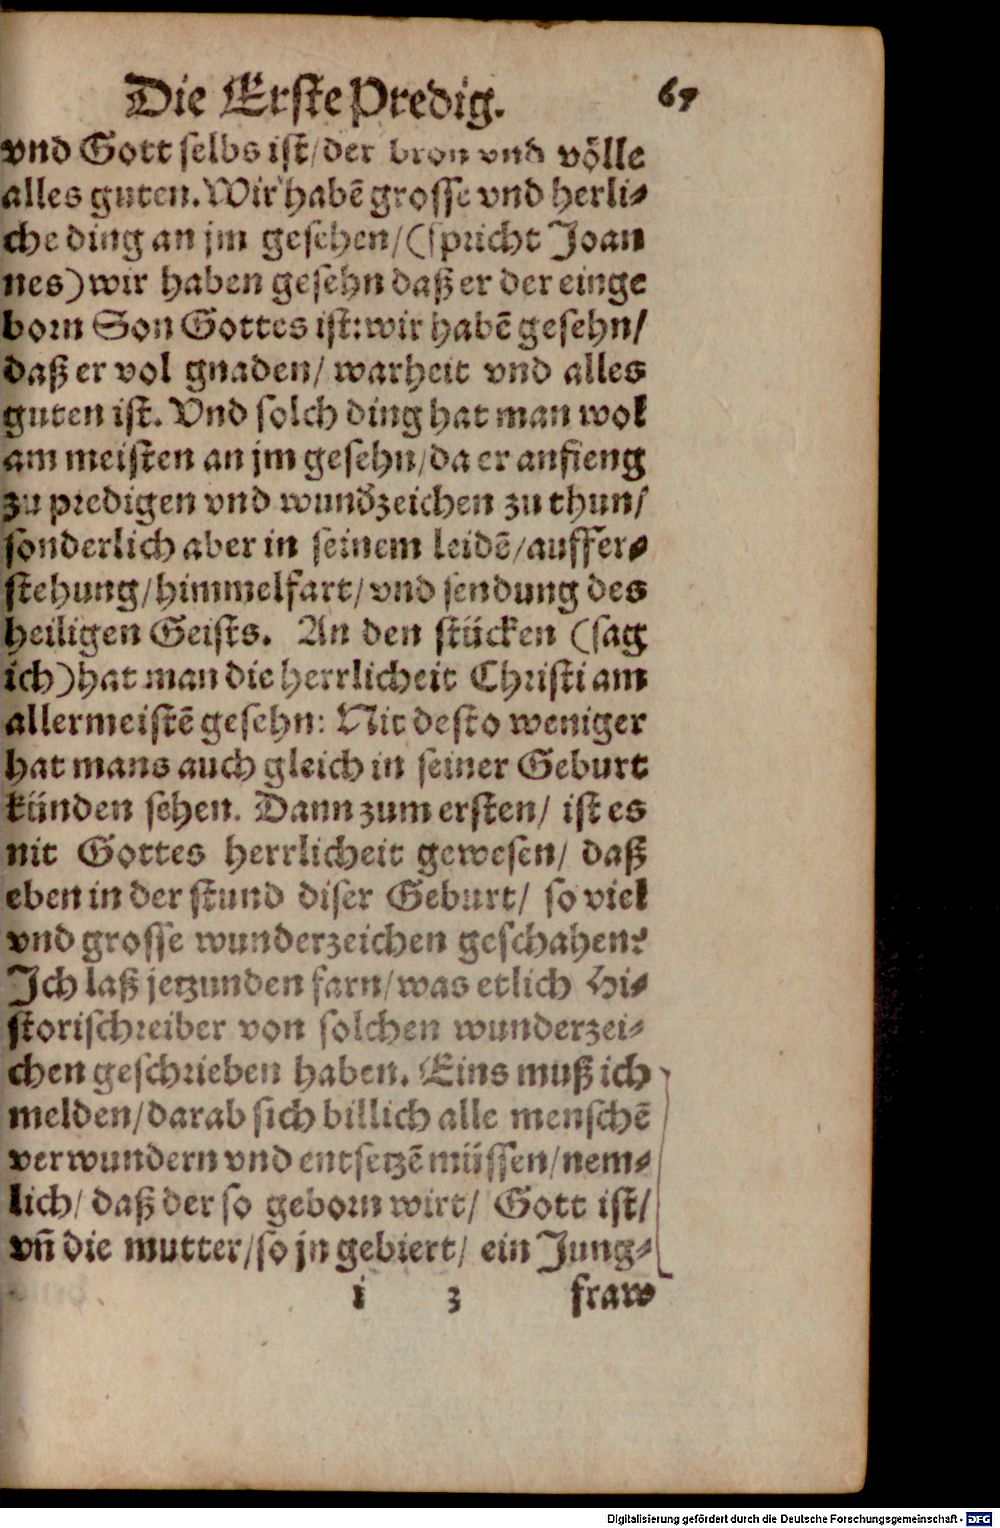 Die Erste Predig. 67
vnd Gott selbs ist/der bron vnd völle
alles guten. Wir habẽ grosse vnd herli-
che ding an jm gesehen/(spricht Joan
nes) wir haben gesehn daß er der einge
born Son Gottes ist: wir habẽ gesehn/
daß er vol gnaden/ warheit vnd alles
guten ist. Vnd solch ding hat man wol
am meisten an jm gesehn/da er anfieng
zu predigen vnd wundzeichen zu thun/
sonderlich aber in seinem leidẽ/auffer-
stehung/himmelfart/ vnd sendung des
heiligen Geists. An den stücken (sag
ich) hat man die herrlicheit Christi am
allermeistẽ gesehn: Nit desto weniger
hat mans auch gleich in seiner Geburt
künden sehen. Dann zum ersten/ ist es
nit Gottes herrlicheit gewesen/ daß
eben in der stund diser Geburt/ so viel
vnd grosse wunderzeichen geschahen?
Ich laß jetzunden farn/was etlich Hi-
storischreiber von solchen wunderzei-
chen geschrieben haben. Eins muß ich
melden/darab sich billich alle menschẽ
verwundern vnd entsetzẽ müssen/nem-
lich/ daß der so geborn wirt/ Gott ist/
vñ die mutter/so jn gebiert/ ein Jung-
i 3 fraw
Digitalisierung gefördert durch die Deutsche Forschungsgemeinschaft - DFG